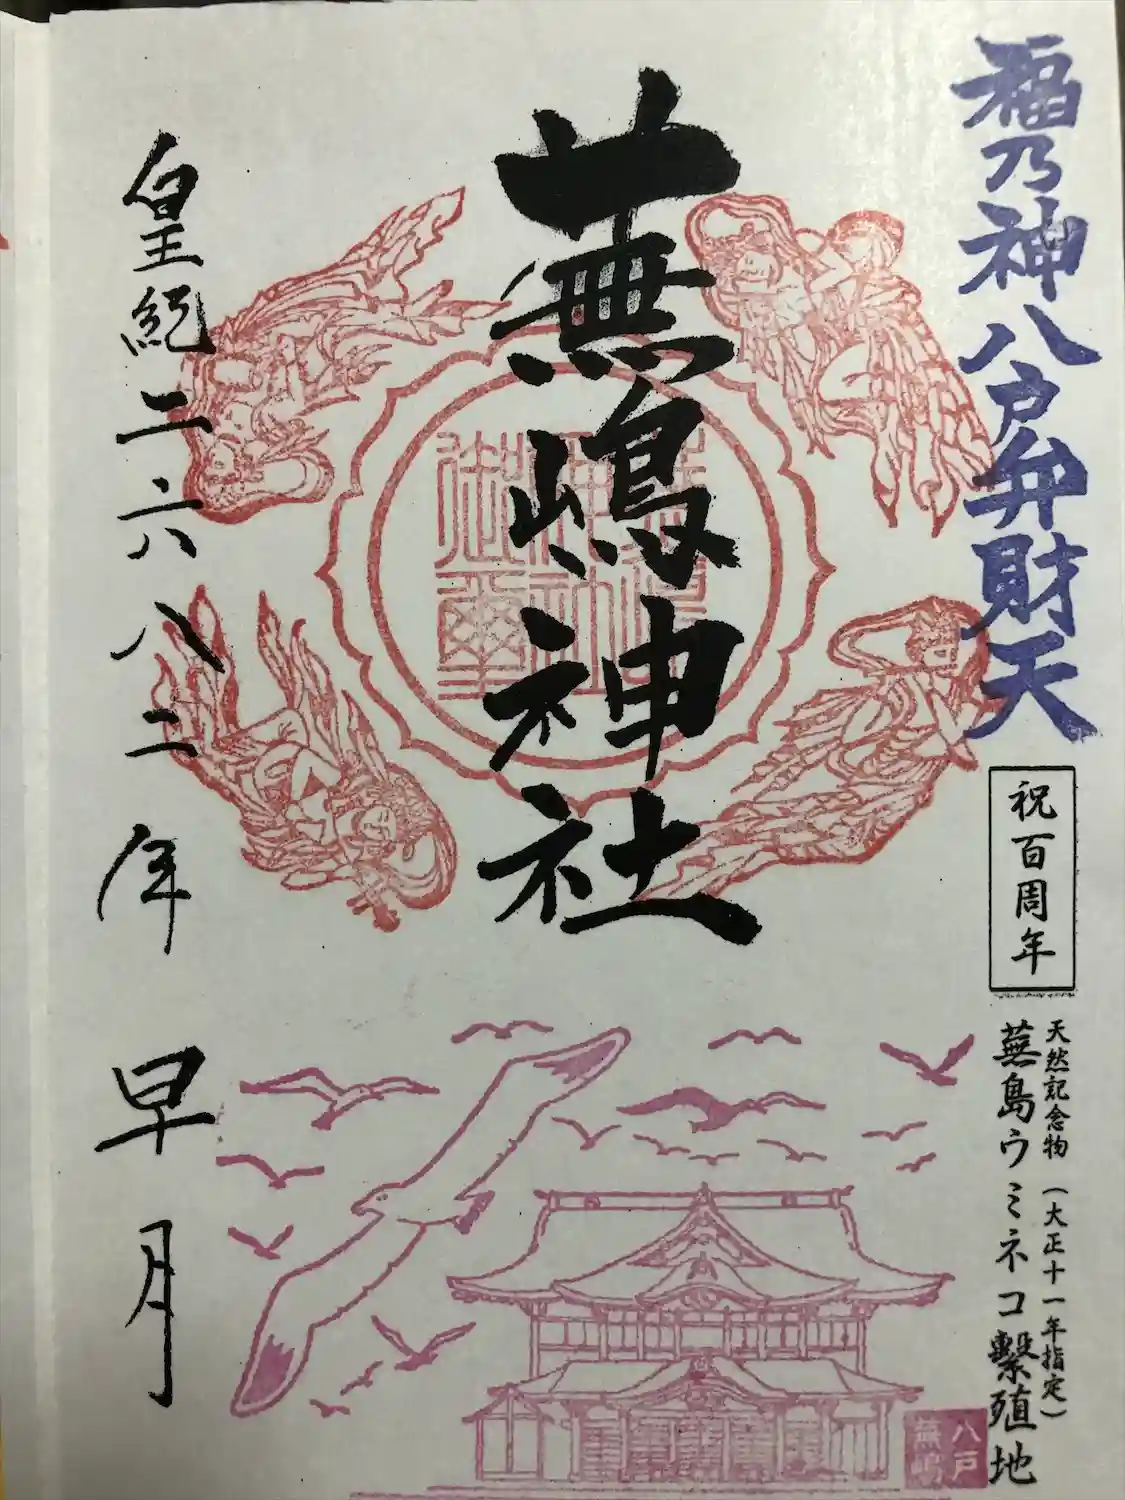 福乃神八戸弁財天
祝百周年
天然記念物（大正十一年指定）
蕪島ウミネコ繫殖地
八戸
蕪嶋
蕪嶋神社
蕪嶋
神社
御璽
皇紀二六八二年 早月